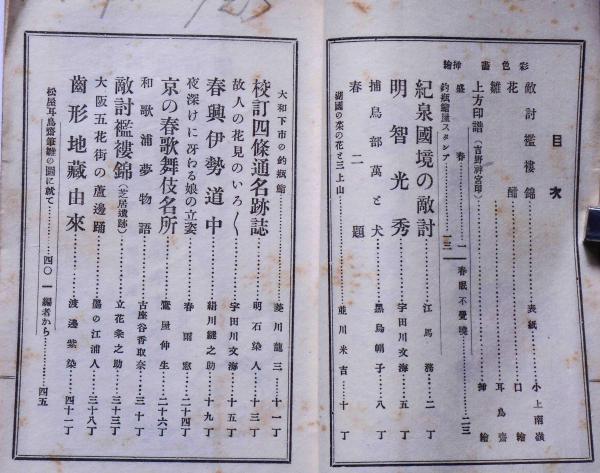 目次
彩色畵挿繪
敵討襤褸錦……表紙……小上南嶺
花醋……口繪
雛……耳鳥齋
上方印譜(吉野神宮印)……挿繪
盛春……一
春眠不覺曉……二三
釣瓶鮨屋スタンプ……一三
紀泉國境の敵討……江馬務…二丁
明智光秀……宇田川文海…五丁
捕鳥部萬と犬……黒烏帽子…八丁
春二題
湖國の菜の花と三上山……熊川米吉…十丁
大和下市の釣瓶鮨……菱川龍三…十一丁
校訂四條通名跡誌……明石染人…十三丁
故人の花見のいろ〱……宇田川文海…十五丁
春興伊勢道中……絹川鍵之助…十九丁
夜深けに冴わる娘の立姿……春雨窓…二十四丁
京の春歌舞伎名所……鶯屋伸生…二十六丁
和歌浦夢物語……古座谷香取奈…三十丁
敵討襤褸錦(芝居遺跡)……立花粂之助…三十三丁
大阪五花街の蘆邊踊……墨の江浦人…三十八丁
齒形地藏由來……渡邊紫染…四十二丁
松屋耳鳥齋筆雛の圖に就て……四〇
編者から……四五